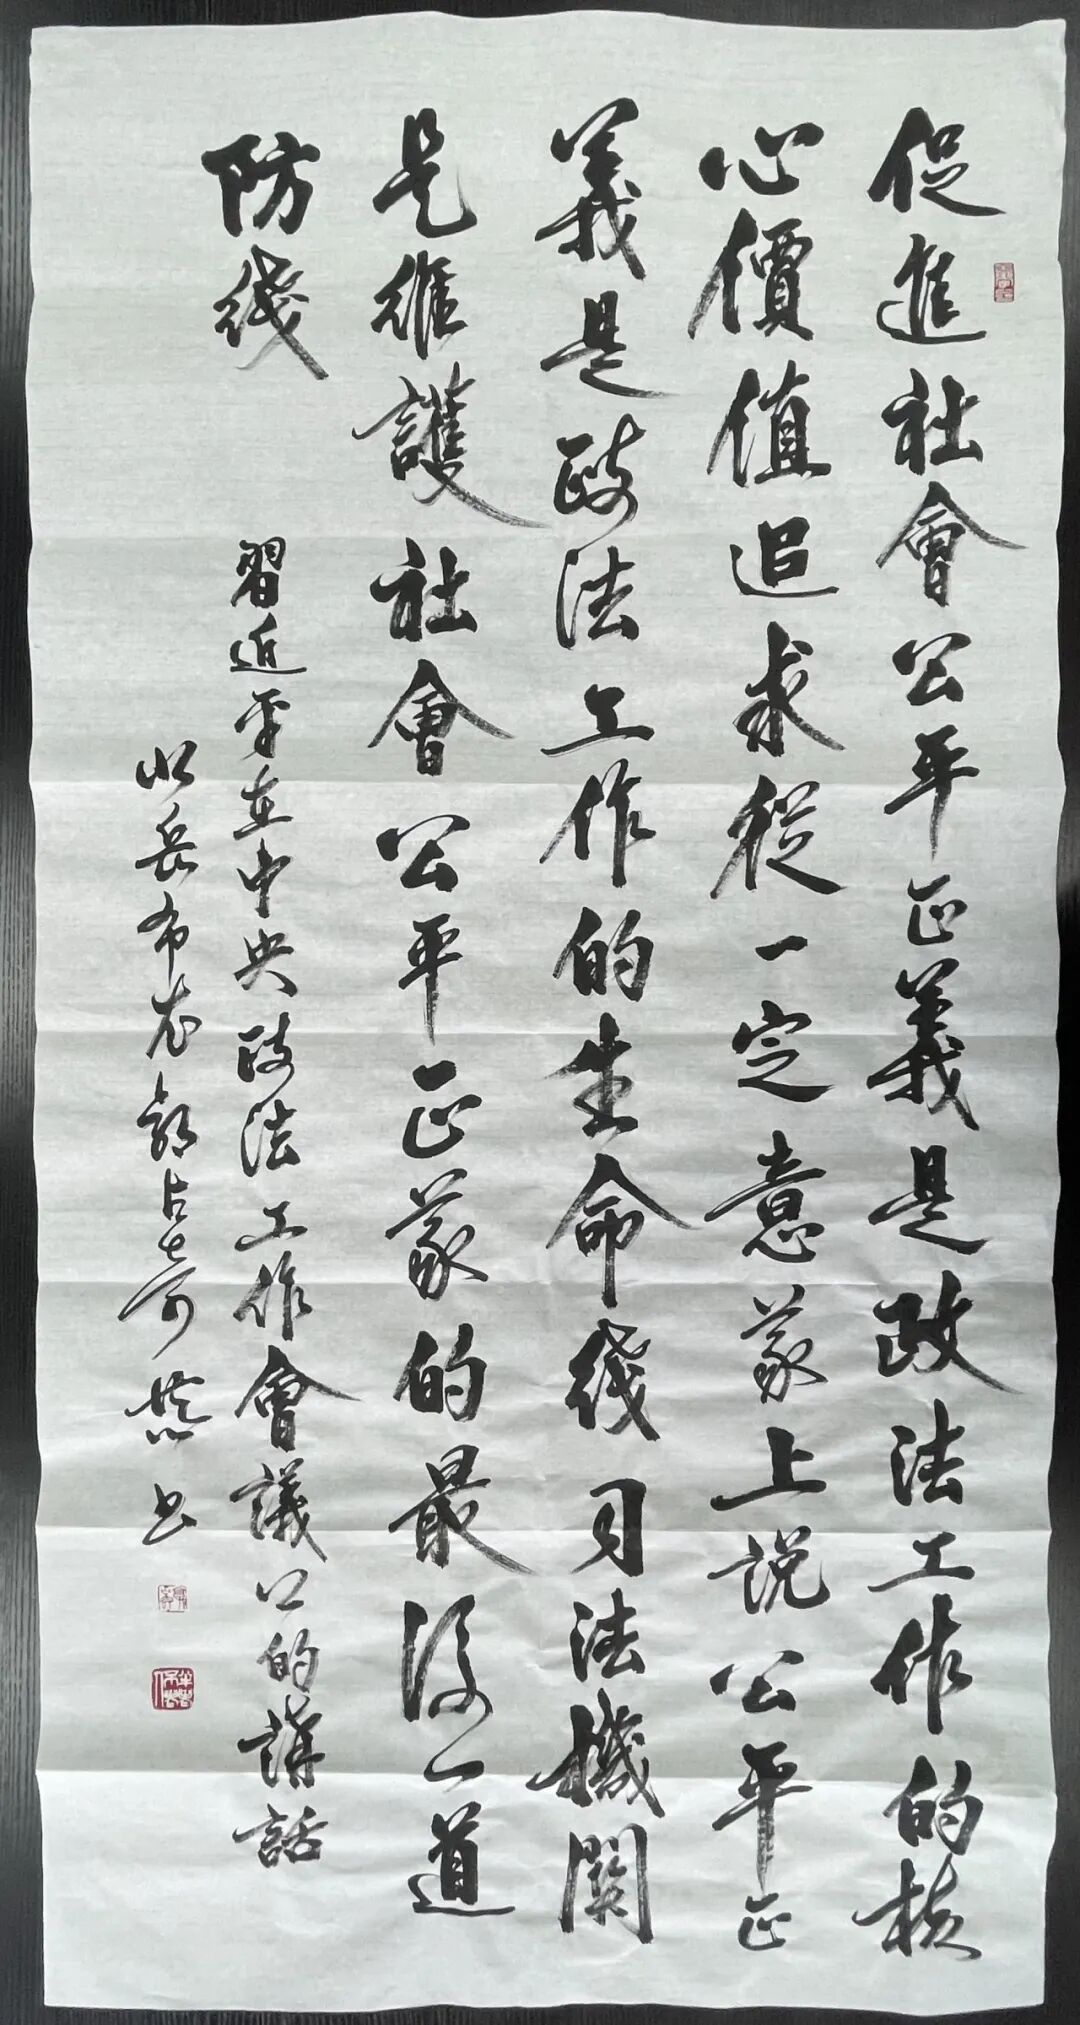 促進社會公平正義是政法工作的核
心價值追求從一定意義上說公平正
義是政法工作的生命线司法機關
是維護社會公平正義的最後一道
防线
習近平在中央政法工作會議上的講話
岳布衣郭占奇恭书